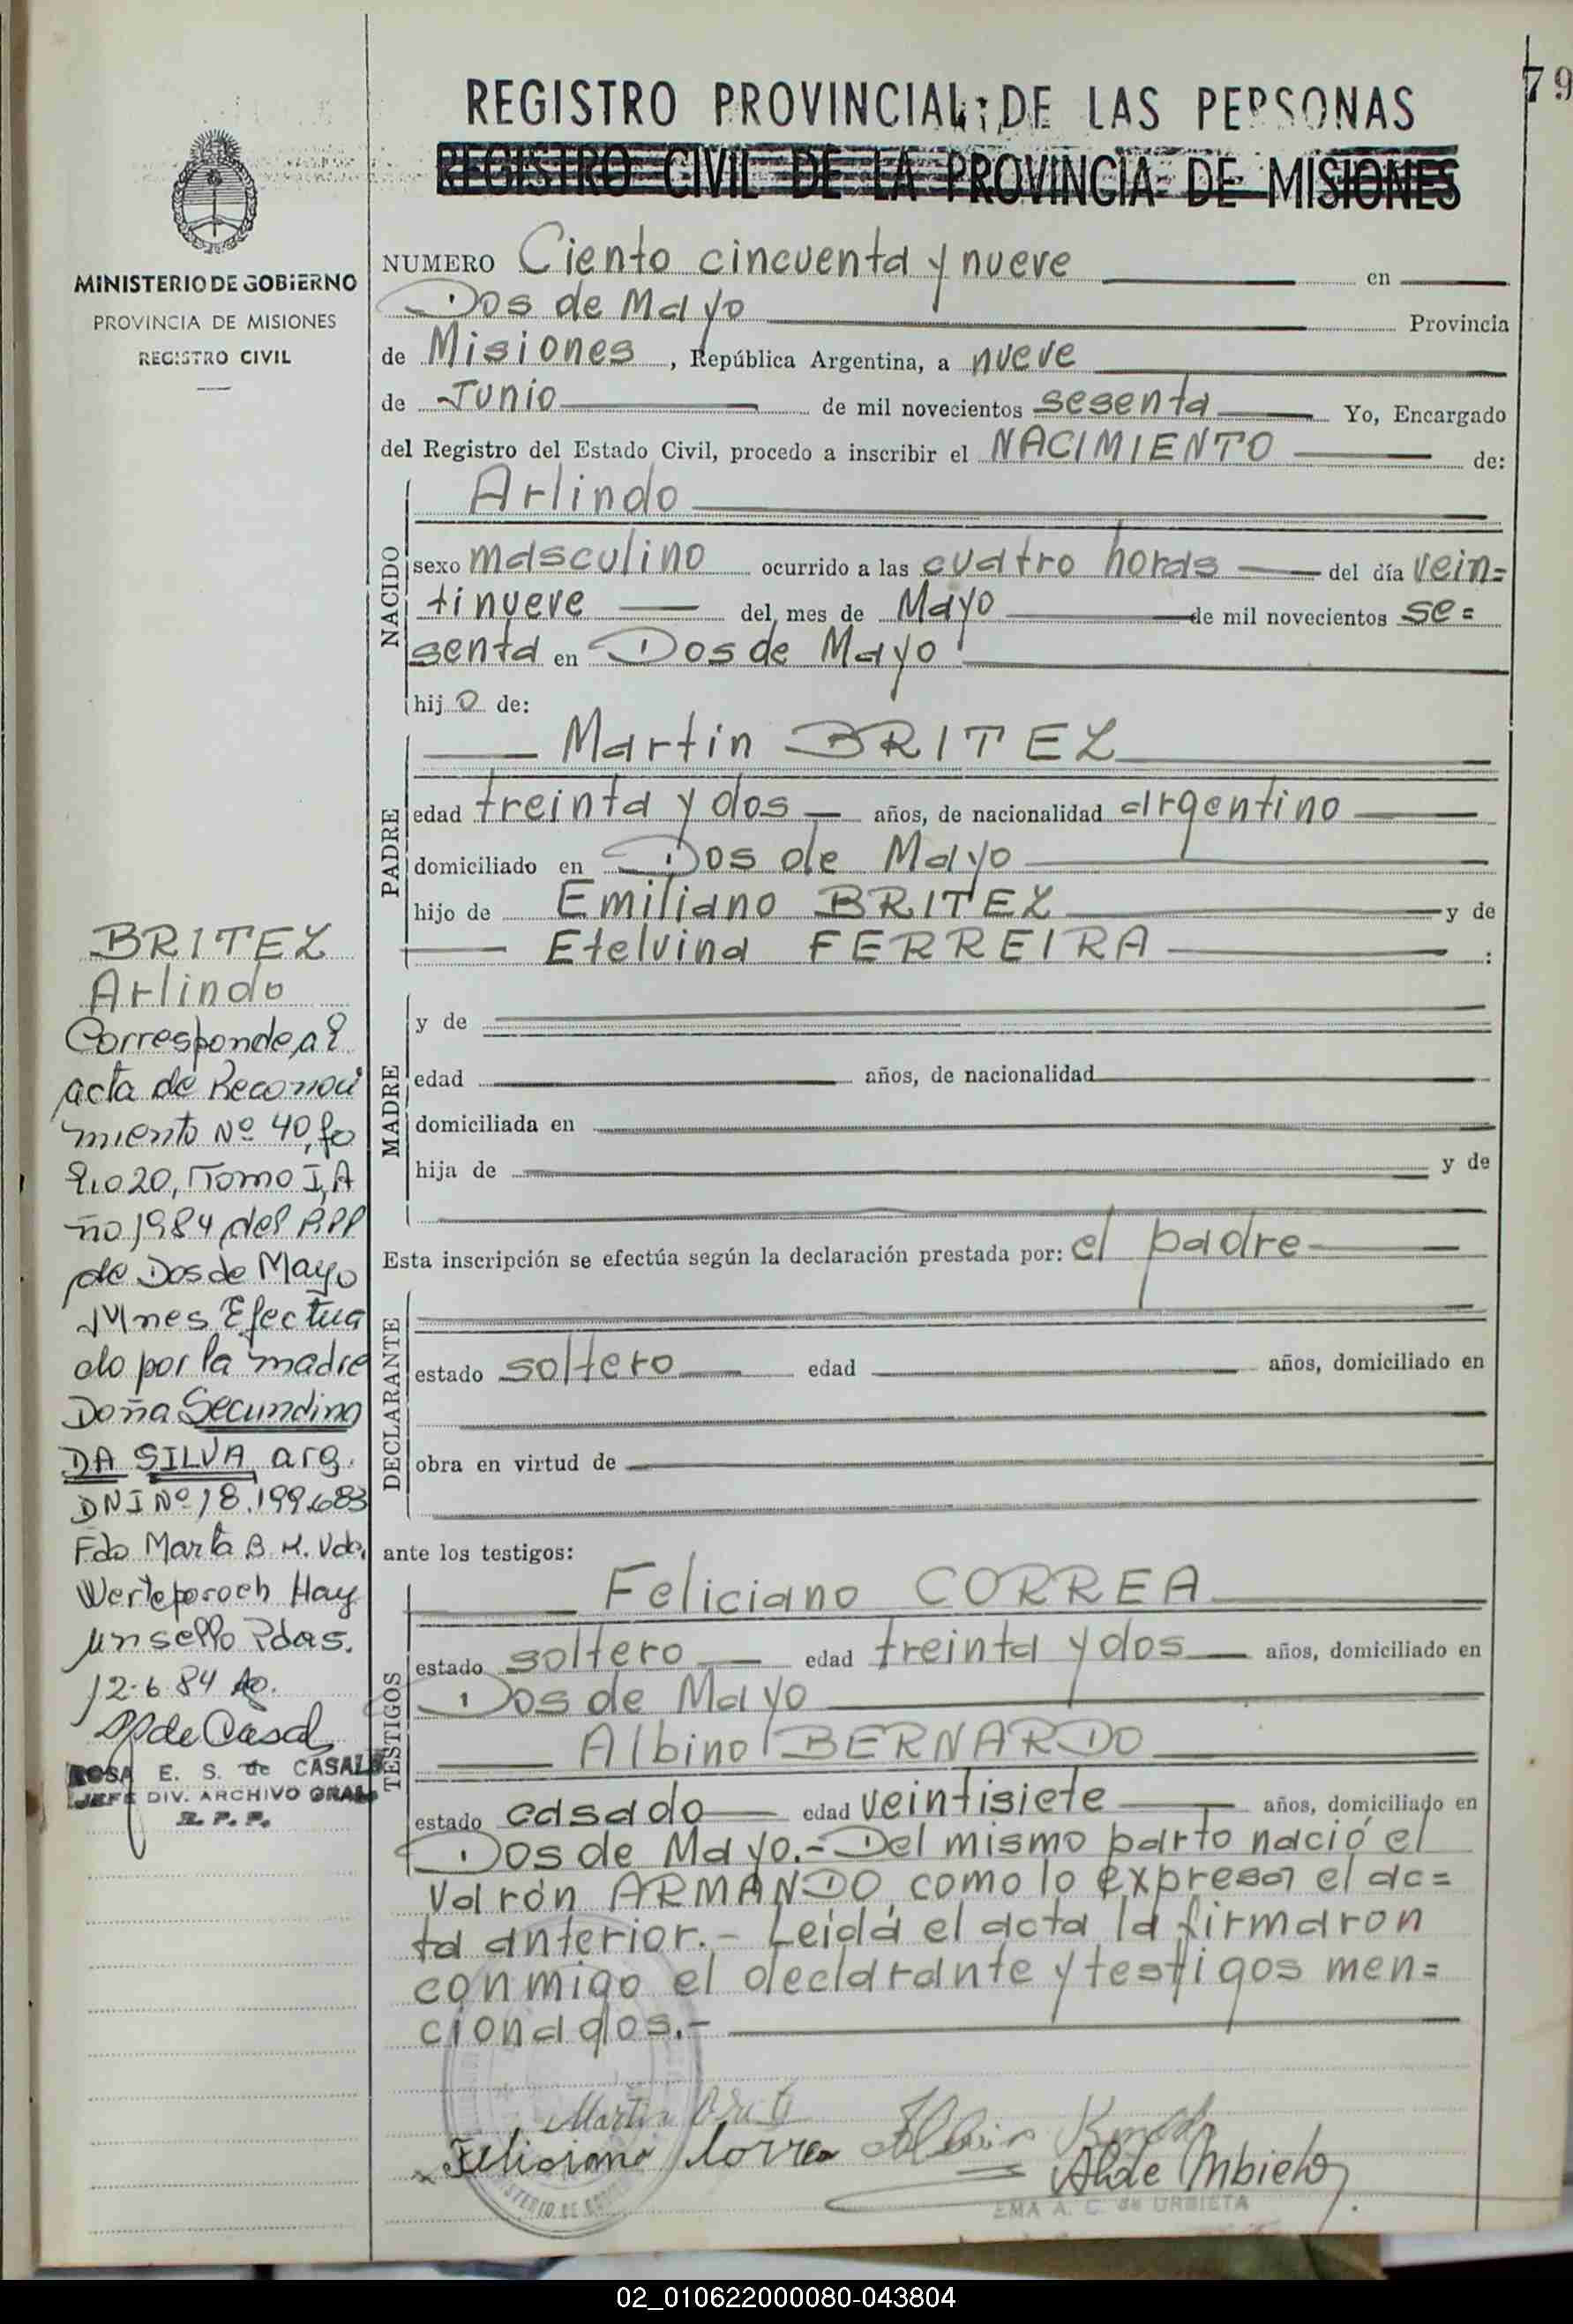 79
REGISTRO PROVINCIAL DE LAS PERSONAS
REGISTRO CIVIL DE LA PROVINCIA DE MISIONES
MINISTERIO DE GOBIERNO
PROVINCIA DE MISIONES
REGISTRO CIVIL
NUMERO Ciento cincuenta y nueve en
Dos de Mayo Provincia
de Misiones, República Argentina, a nueve
de Junio de mil novecientos sesenta Yo, Encargado
del Registro del Estado Civil, procedo a inscribir el NACIMIENTO de:
NACIDO
Arlindo
sexo masculino ocurrido a las cuatro horas del día vein=
tinueve del mes de Mayo de mil novecientos se=
senta en Dos de Mayo
hijo de:
PADRE
Martin BRITEZ
edad treinta y dos años, de nacionalidad argentino
domiciliado en Dos de Mayo
hijo de Emiliano BRITEZ y de
Etelvina FERREIRA :
MADRE
y de
edad años, de nacionalidad
domiciliada en
hija de y de
Esta inscripción se efectúa según la declaración prestada por: el padre
DECLARANTE
estado soltero edad años, domiciliado en
obra en virtud de
ante los testigos:
TESTIGOS
Feliciano CORREA
estado soltero edad treinta y dos años, domiciliado en
Dos de Mayo
Albino BERNARDO
estado casado edad veintisiete años, domiciliado en
Dos de Mayo.- Del mismo parto nació el
varón ARMANDO, como lo expresa el ac=
ta anterior.- Leída el acta la firmaron
conmigo el declarante y testigos men=
cionados.-
BRITEZ
Arlindo
Corresponde al
acta de Reconoci
miento Nº 40, fo
lio 20, Tomo I, A
ño 1984 del RPP
de Dos de Mayo
Mnes Efectua
do por la madre
Doña Secundina
DA SILVA arg.
DNI Nº 18.199.683
Fdo Marta B. K. Vda.
Hay
un sello Pdas.
12-6-84
de Casal
ROSA E. S. de CASALS
JEFE DIV. ARCHIVO GRAL
R. P. P.
Martin
Feliciano Correa
EMA A. C. de URBIETA
02_010622000080-043804